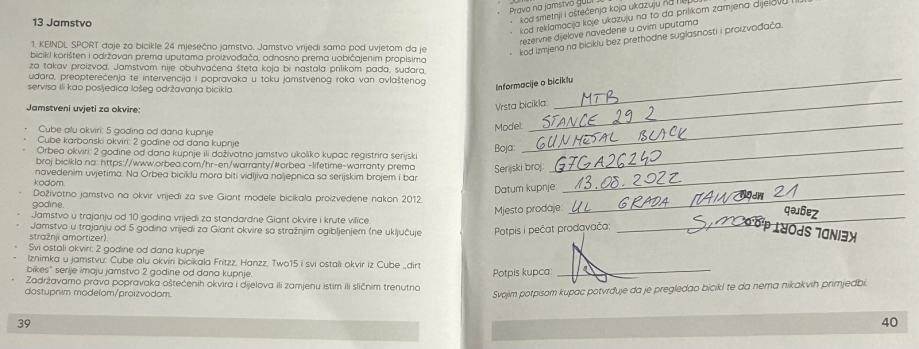 13 Jamstvo
1. KEINDL SPORT daje za bicikle 24 mjesečno jamstvo. Jamstvo vrijedi samo pod uvjetom da je
bicikl korišten i održavan prema uputama proizvođača, odnosno prema uobičajenim propisima
za takav proizvod. Jamstvom nije obuhvaćena šteta koja bi nastala prilikom pada, sudara,
udara, preopterećenja te intervencija i popravaka u toku jamstvenog roka van ovlaštenog
servisa ili kao posljedica lošeg održavanja bicikla.
Jamstveni uvjeti za okvire:
• Cube alu okviri: 5 godina od dana kupnje
• Cube karbonski okviri: 2 godine od dana kupnje
• Orbea okviri: 2 godine od dana kupnje ili doživotno jamstvo ukoliko kupac registrira serijski
broj bicikla na: https://www.orbea.com/hr-en/warranty/#orbea-lifetime-warranty prema
navedenim uvjetima. Na Orbea biciklu mora biti vidljiva naljepnica sa serijskim brojem i bar
kodom.
• Doživotno jamstvo na okvir vrijedi za sve Giant modele bicikala proizvedene nakon 2012.
godine.
• Jamstvo u trajanju od 10 godina vrijedi za standardne Giant okvire i krute vilice.
• Jamstvo u trajanju od 5 godina vrijedi za Giant okvire sa stražnjim ogibljenjem (ne uključuje
stražnji amortizer).
• Svi ostali okviri: 2 godine od dana kupnje
• Iznimka u jamstvu: Cube alu okviri bicikala Fritzz, Hanzz, Two15 i svi ostali okvir iz Cube „dirt
bikes" serije imaju jamstvo 2 godine od dana kupnje.
• Zadržavamo pravo popravaka oštećenih okvira i dijelova ili zamjenu istim ili sličnim trenutno
dostupnim modelom/proizvodom.
39
• Pravo na jamstvo
• kod smetnji i oštećenja koja ukazuju na
• kod reklamacija koje ukazuju na to da prilikom zamjena dijelova
rezervne dijelove navedene u ovim uputama
• kod izmjena na biciklu bez prethodne suglasnosti i proizvođača.
Informacije o biciklu
Vrsta bicikla: MTB
Model: STANCE 29 2
Boja: GUNMETAL BLACK
Serijski broj: G7GA26240
Datum kupnje: 13.08.2022
Mjesto prodaje: UL GRADA 21
Potpis i pečat prodavača:
KEINDL SPORT d.o.o.
Zagreb
Potpis kupca:
Svojim potpisom kupac potvrđuje da je pregledao bicikl te da nema nikakvih primjedbi.
40